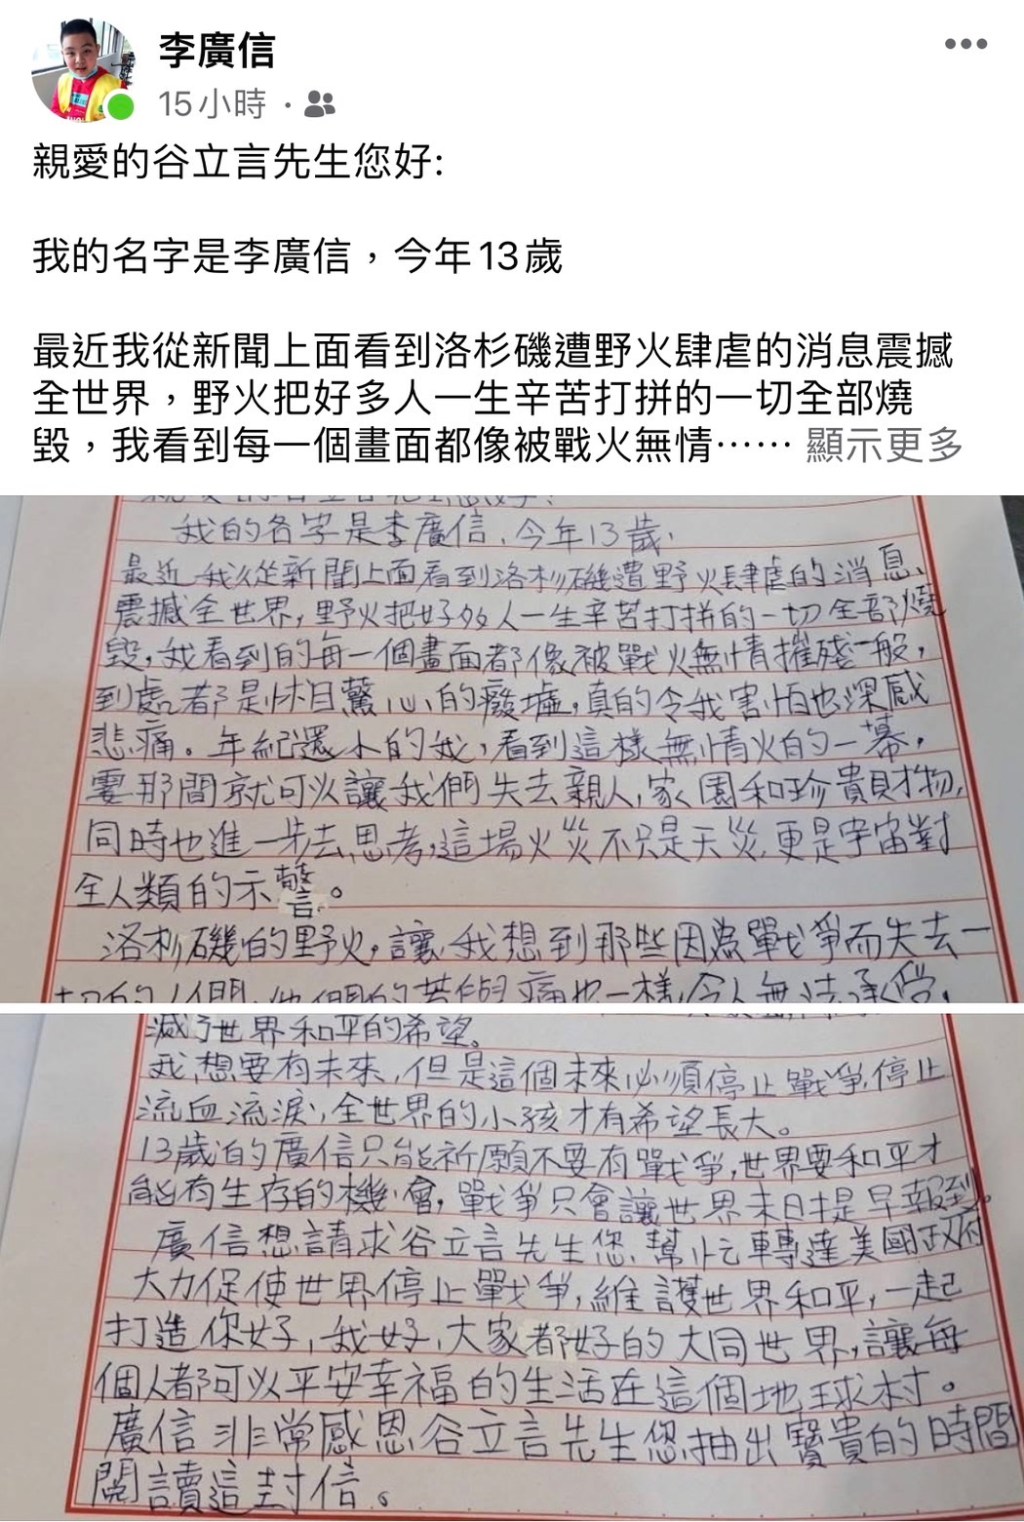 李廣信
15小時
親愛的谷立言先生您好:
我的名字是李廣信，今年13歲
最近我從新聞上面看到洛杉磯遭野火肆虐的消息震撼
全世界，野火把好多人一生辛苦打拼的一切全部燒
毀，我看到每一個畫面都像被戰火無情…… 顯示更多
我的名字是李廣信,今年13歲,
最近我從新聞上面看到洛杉磯遭野火肆虐的消息
震撼全世界,野火把好多人一生辛苦打拼的一切全部燒
毀,我看到的每一個畫面都像被戰火無情摧殘一般,
到處都是怵目驚心的廢墟,真的令我害怕也深感
悲痛。年紀還小的我,看到這樣無情火的一幕,
霎那間就可以讓我們失去親人,家園和珍貴財物,
同時也進一步去思考,這場火災不只是天災,更是宇宙對
全人類的示警。
洛杉磯的野火,讓我想到那些因為戰爭而失去一
切的人們,他們的苦與痛也一樣,令人無法承受,
滅了世界和平的希望。
我想要有未來,但是這個未來必須停止戰爭,停止
流血流淚,全世界的小孩才有希望長大。
13歲的廣信只能祈願不要有戰爭,世界要和平才
能有生存的機會,戰爭只會讓世界末日提早報到。
廣信想請求谷立言先生您幫忙轉達美國政府
大力促使世界停止戰爭,維護世界和平,一起
打造你好,我好,大家都好的大同世界,讓每
個人都可以平安幸福的生活在這個地球村。
廣信非常感恩谷立言先生您抽出寶貴的時間
閱讀這封信。